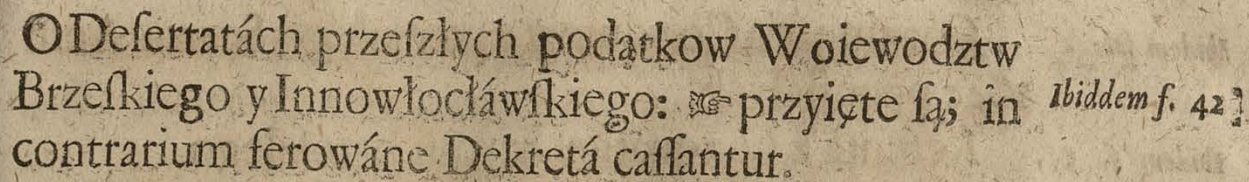 O Deſertatách przeſzłych podątkow Woiewodztw
Brzeſkiego y Innowłocłáwſkiego: ☞ przyięte ſą; in
contrarium ferowáne Dekretá caſſantur.
Ibiddem f. 42